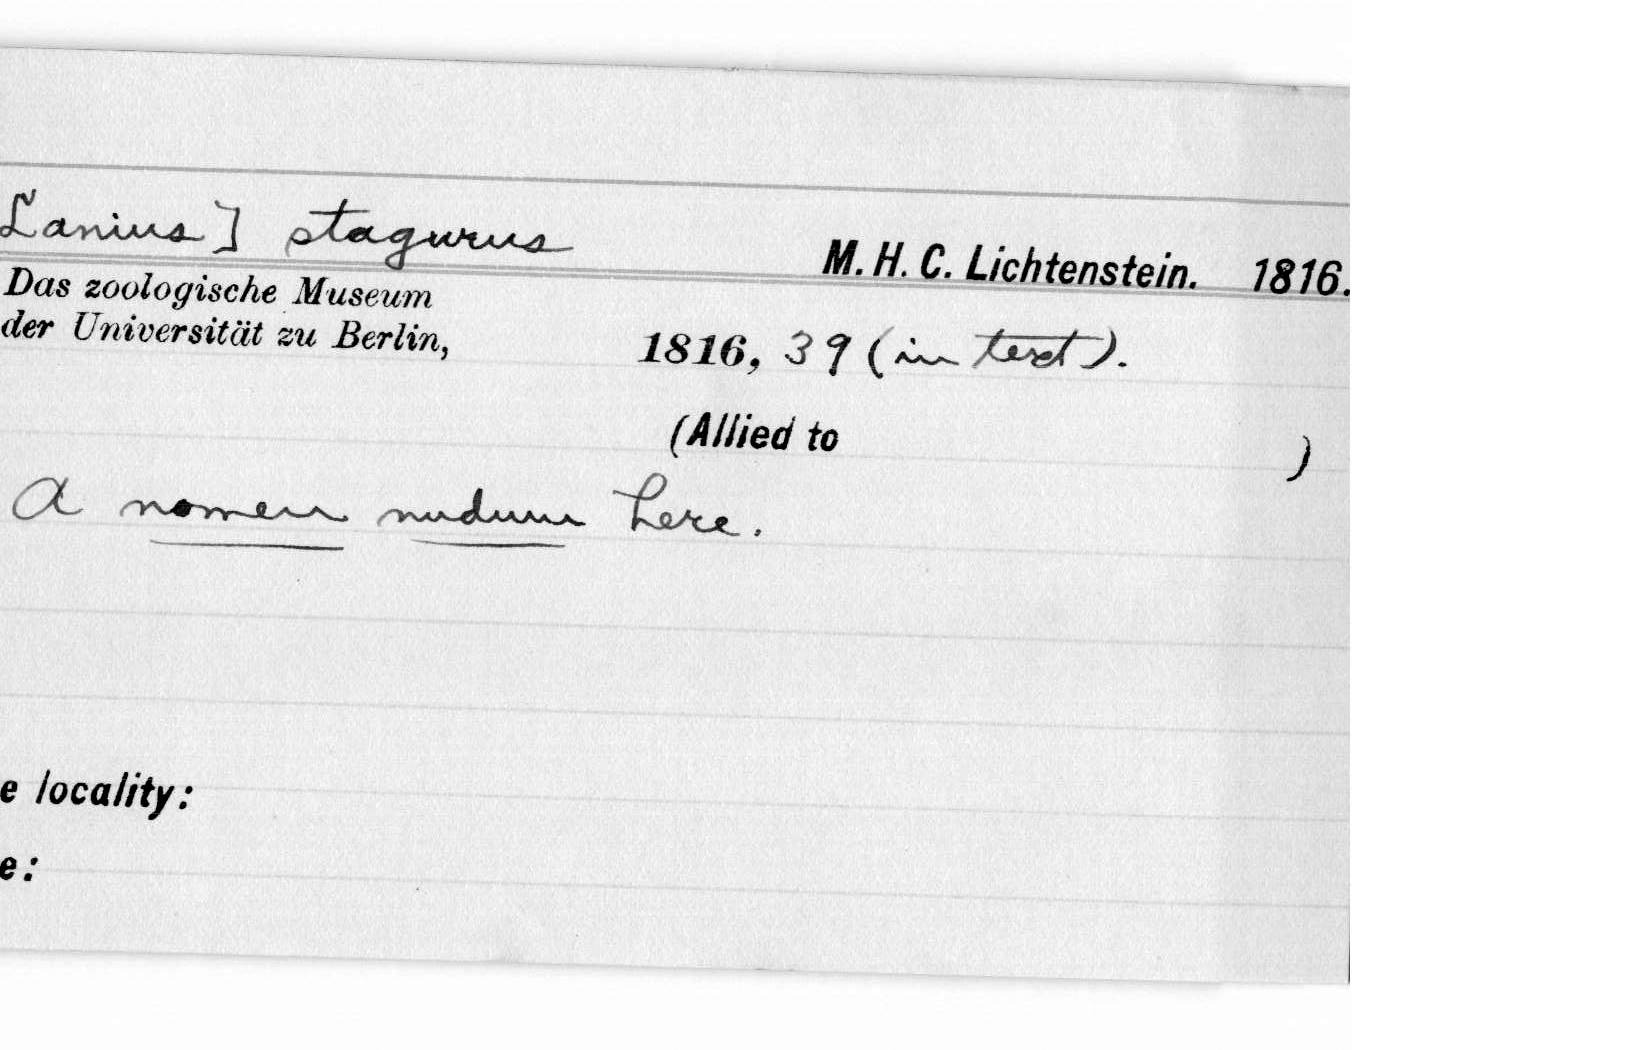 Lanius] stagurus
M. H. C. Lichtenstein. 1816.
Das zoologische Museum
der Universität zu Berlin,
1816, 39 (in text).
(Allied to )
A nomen nudum here.
e locality:
e: